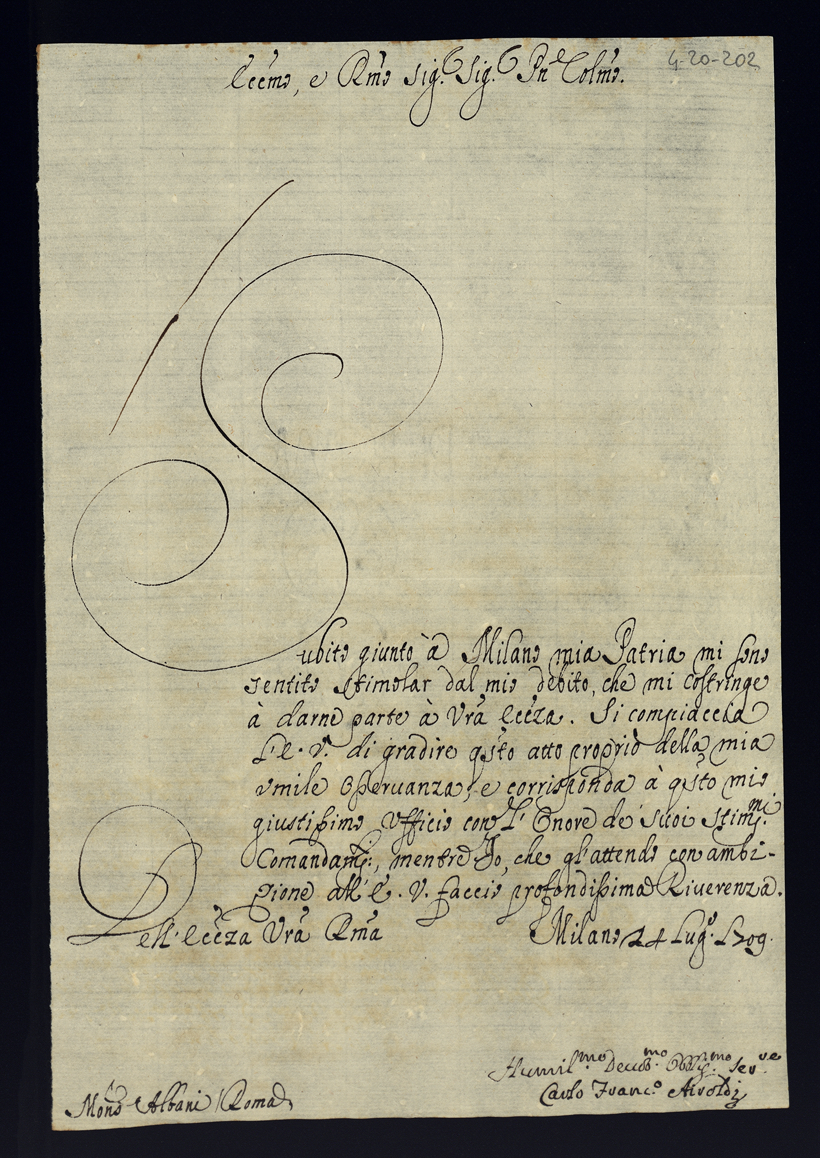 4-20-202
Eccmo, e Rmo Sig.r Sig.r Pñe Colmo.
Subito giunto à Milano mia Patria mi sono
sentito stimolar dal mio debito, che mi costringe
à darne parte à Vrã Eccza. Si compiaccia
L'E. V. di gradire qsto atto proprio della mia
umile osservanza, e corrisponda à qsto mio
giustissimo Ufficio con L'Onore de' suoi Stim.mi
Comandam.ti, mentre Io, che gl'attendo con ambi-
zione all'E. V. faccio profondissima Riverenza.
Dell'Eccza Vrã Rmã Milano 24 Lug.o 1709.
Humil.mo Devot.mo Obblig.mo Ser.ve
Carlo Franc.o Airoldi
Monsr Albani / Roma